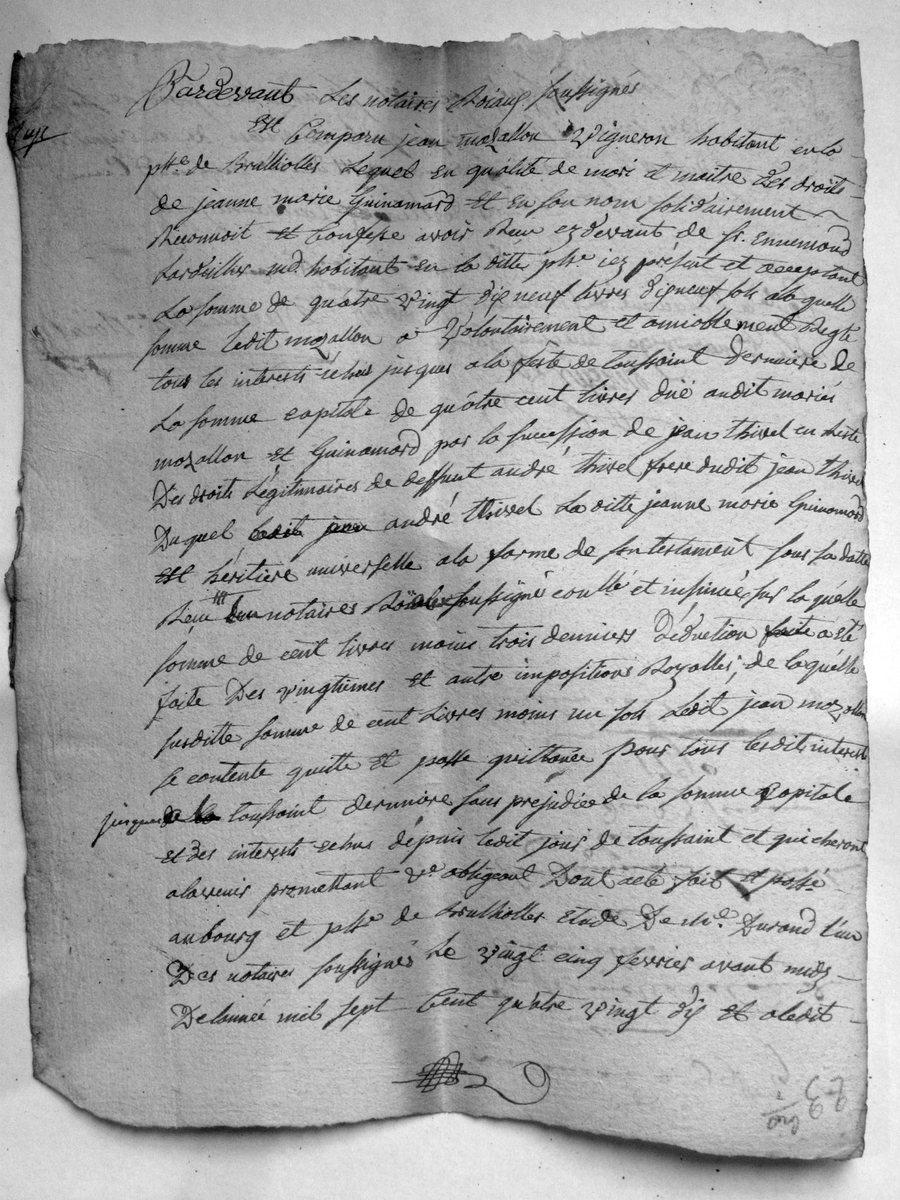 Pardevant Les notaires Roiaux soussignés
Est Comparu jean mozallon Vigneron habitant en la
psse. de Brulliolles Lequel en qualité de mari et maitre des droits
de jeanne marie Guinamard et en son nom solidairement
Reconnoit et Confesse avoir Reçu cy devant de sr. Ennemond
md habitant en la ditte psse. icy présent et acceptant
La somme de quatre vingt dix neuf livres dix neuf sols a la quelle
somme ledit mozallon a Volontairement et amiablement Reglé
tous les interests échus jusques a la feste de toussaint derniere de
La somme capitale de quatre cent livres düe audit mariés
mozallon et Guinamard par la succession de jean thivel en Reste
Des droits Légitimaires de deffunt andré thivel frere dudit jean thivel
Duquel andré thivel La ditte jeanne marie Guinamard
est héritiere universelle a la forme de son testament sous sa datte
Reçu notaires soussigné conllé et insinué, sur la quelle
somme de cent livres moins trois denniers Déduction faite a eté
faite Des vingtiemes et autre impositions Royalles, de la quelle
susditte somme de cent livres moins un sols Ledit jean mozallon
se contente quitte et passe quittance pour tous lesdit interests
jusques la toussaint derniere sans prejudice de la somme Capitale
et des interests echus depuis ledit jour de toussaint et qui cheront
alavenir promettant &c obligeant Dont acte fait et passé
au bourg et psse. de Brulliolles etude De Me. Durand L'un
Des notaires soussignés Le vingt cinq fevrier avant midy
De lannée mil sept Cent quatre vingt dix et aledit